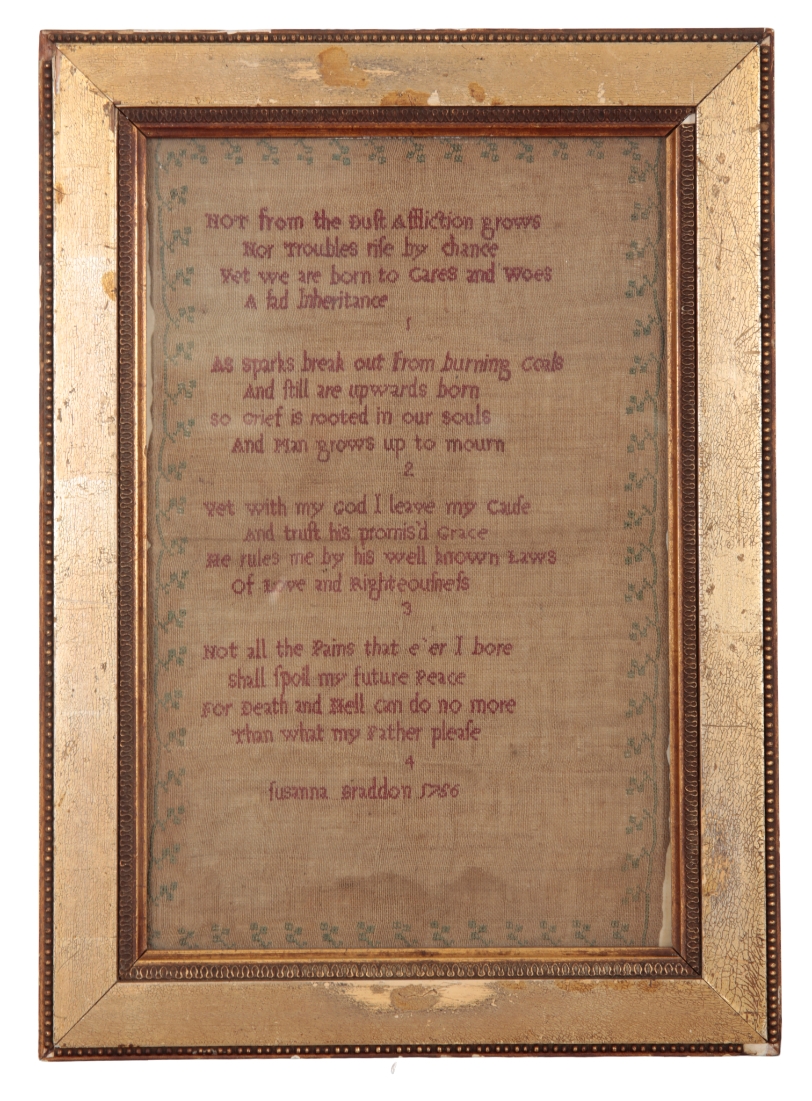 NOT from the Duſt Affliction grows
Nor Troubles riſe by chance
Yet we are born to Cares and Woes
A ſad Inheritance
1
As sparks break out from burning Coals
And ſtill are upwards born
so Grief is rooted in our souls
And Man grows up to mourn
2
Yet with my God I leave my Cauſe
And truſt his promis'd Grace
He rules me by his well known Laws
Of Love and Righteouſneſs
3
Not all the Pains that e'er I bore
shall ſpoil my future Peace
For Death and Hell can do no more
Than what my Father pleaſe
4
ſusanna Braddon 1756